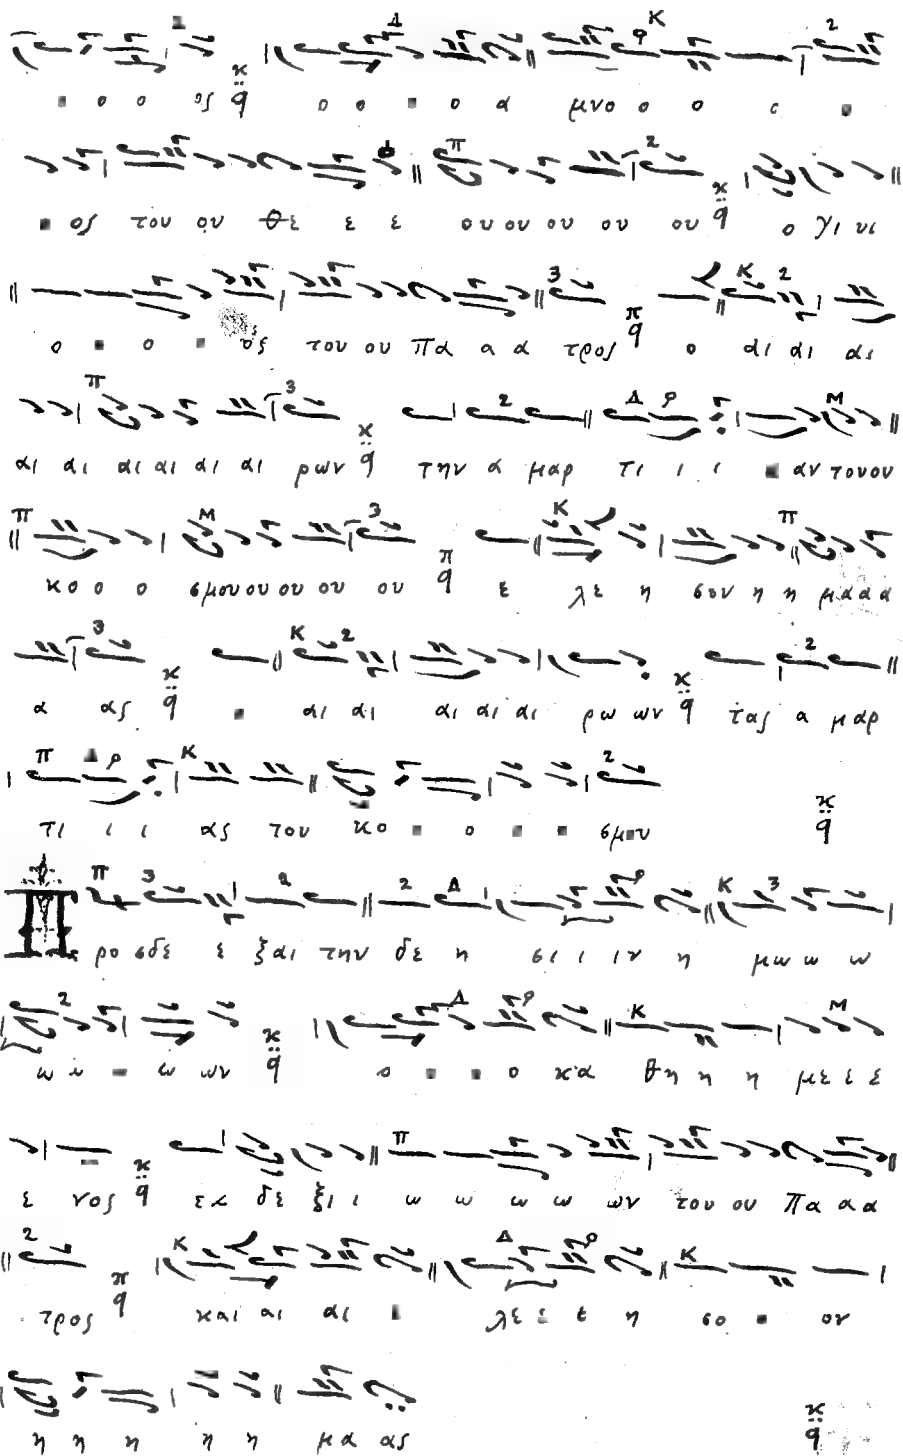 ο ο ος ο ο ο α μνο ο ο ς
ος του ου Θε ε ε ου ου ου ου ου ο γι υι
ο ο ος του ου Πα α α τρος ο αι αι αι
αι αι αι αι αι αι ρων την α μαρ τι ι ι αν τουου
κο ο ο σμου ου ου ου ου ε λε η σον η η μα α α
α ας αι αι αι αι αι ρω ων τας α μαρ
τι ι ι ας του κο ο σμου
Προ σδε ε ξαι την δε η σι ι ι ιν η μω ω ω
ω ω ω ων ο ο κα θη η η με ε ε
ε νος εκ δε ξι ι ω ω ω ω ων του ου Πα α α
τρος και αι αι λε ε ε η σο ον
η η η η η μα ας